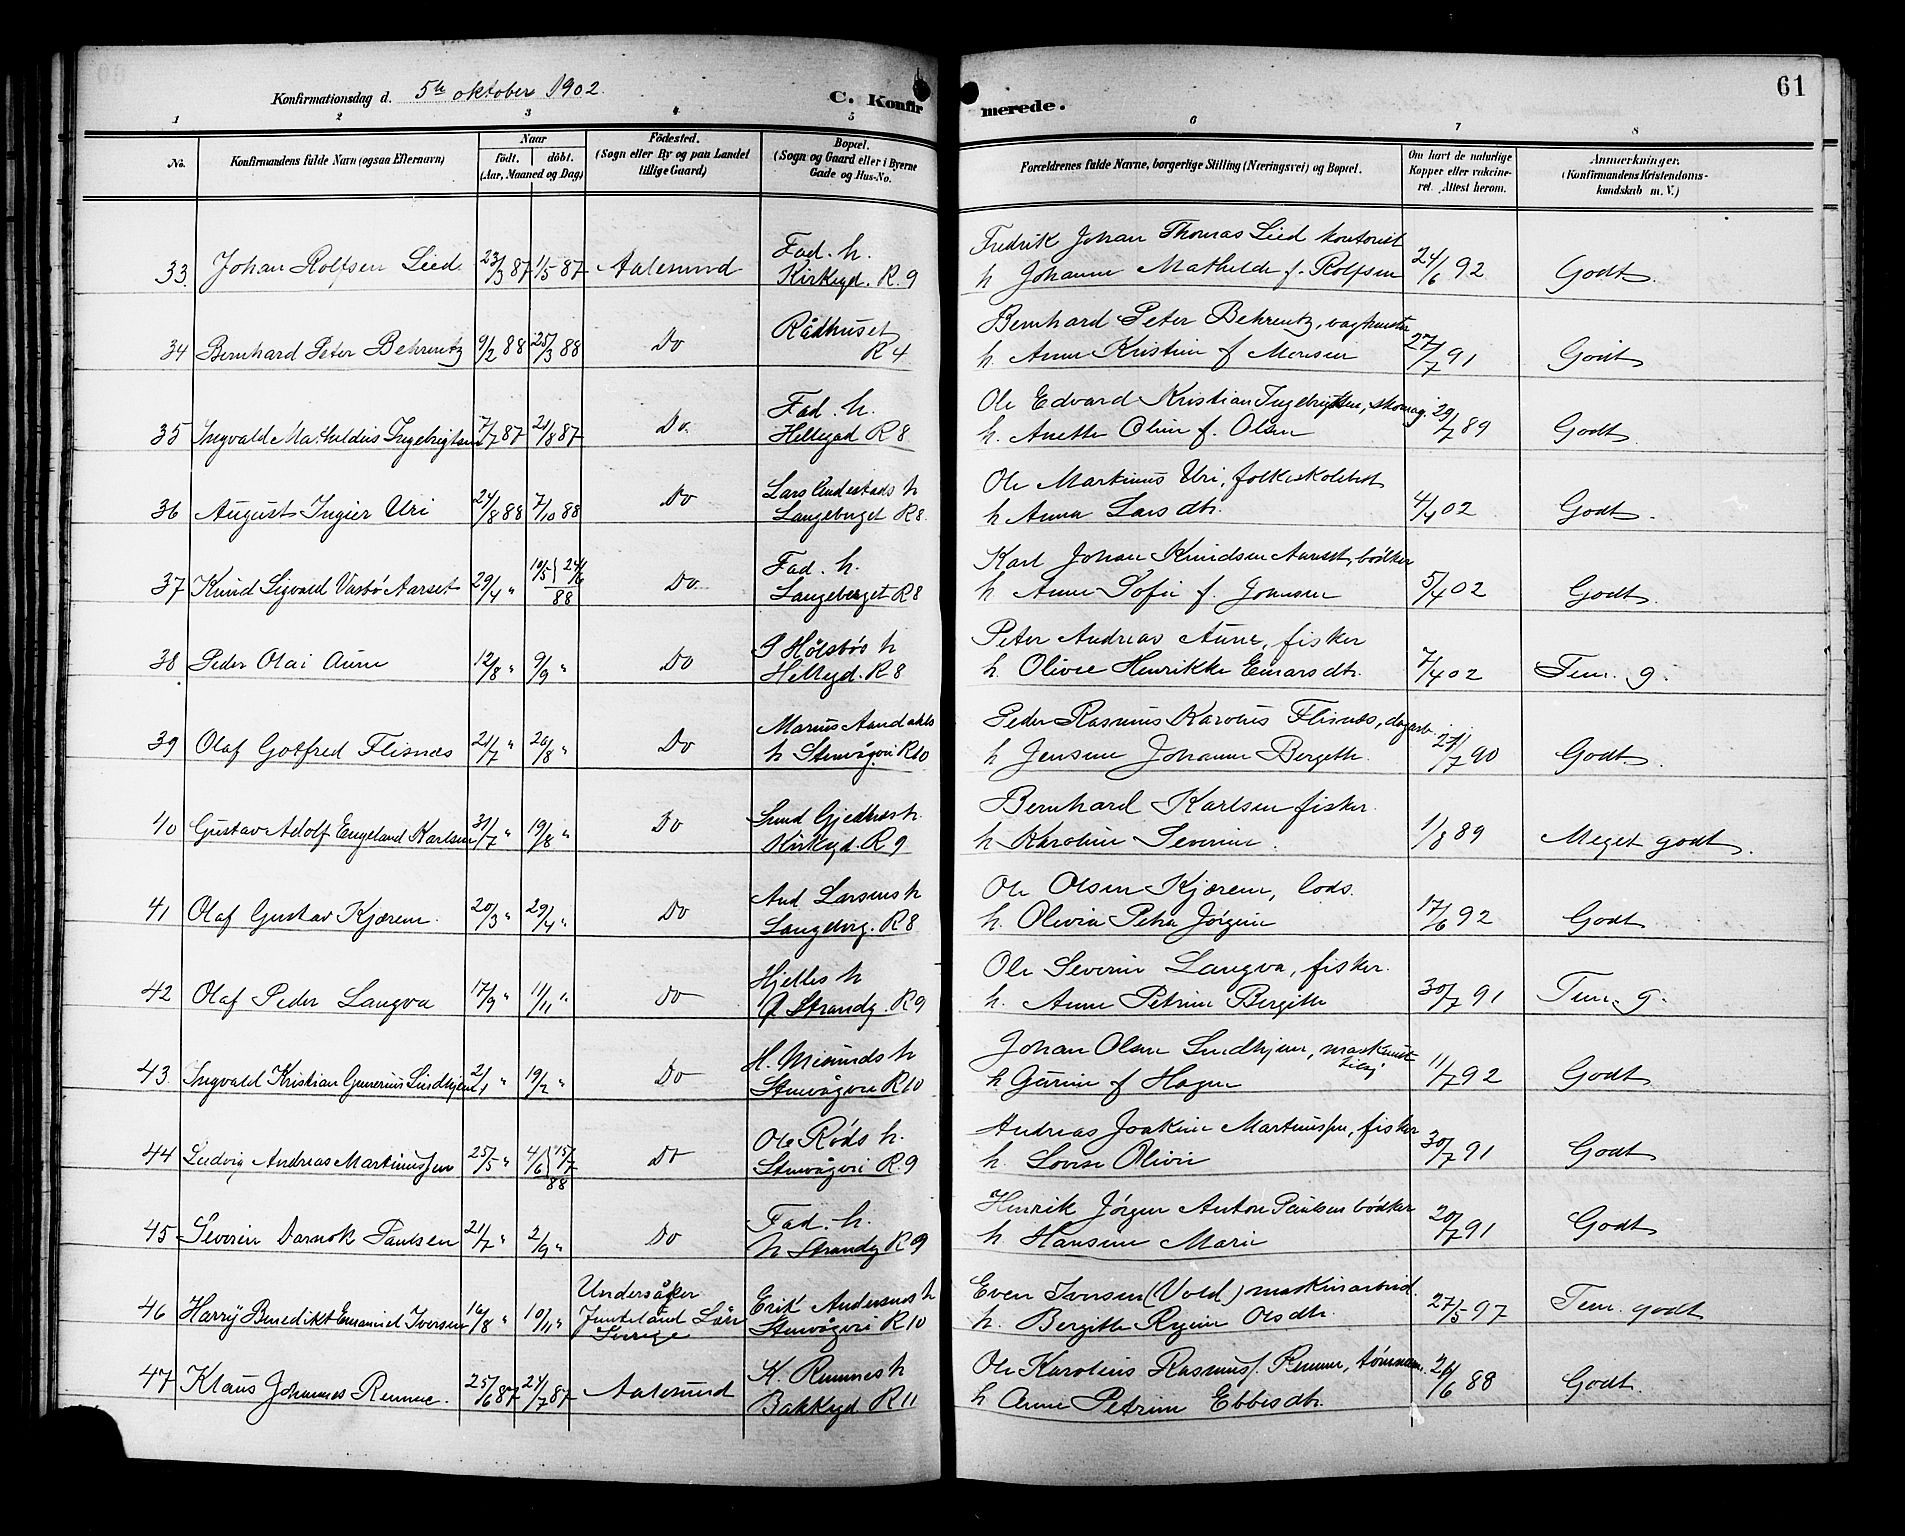 61
Konfirmationsdag d. 5te oktober 1902.
C. Konfirmerede.
1 2 3 4 5 6 7 8
No. Konfirmandens fulde Navn (ogsaa Efternavn) Naar födt. döbt. (Aar, Maaned og Dag) Födested. (Sogn eller By og paa Landet tillige Gaard) Bopæl. (Sogn og Gaard eller i Byerne Gade og Hus-No. Forældrenes fulde Navne, borgerlige Stilling (Næringsvei) og Bopæl. Om havt de naturlige Kopper eller vakcineret. Attest herom. Anmærkninger. (Konfirmandens Kristendomskundskab m. V.)
Fad. h. Fredrik Johan Thomas Lied kontorist
33 Johan Rolfsen Lied 23/3 87 1/5 87 Aalesund Kirkegd. R. 9 h Johanne Mathilde f. Rolfsen 24/6 92 Godt.
Rådhuset Bernhard Peter Behrentz,
34 Bernhard Peter Behrentz 9/2 88 25/3 88 Do R 4 h. Anne Kristine f Monsen 27/7 91 Godt
Fad. h. Ole Edvard Kristian Ingebrigtsen, skomag.
35 Ingvald Mathildus Ingebrigtsen 7/7 87 21/8 87 Do. Hellegad R 8 h. Anette Oline f. Olsen 29/7 89 Godt
Ole Martinus Uri,
36 August Ingier Uri 24/8 88 7/10 88 Do Langeberget R 8. h Anna Larsdtr. 4/4 02 Godt.
Fad. h. Karl Johan Knudsen Aarset, bödker
37 Knud Sigvald Vasbö Aarset 29/4 " 10/5 } 24/6 88 Do Langeberget R 8 h Anne Sofie f. Johnsen 5/4 02 Godt.
P Hölsbös h Peter Andreas Aune, fisker
38 Peder Olai Aune 12/8 " 9/9 " Do Hellegd. R 8 h. Olivie Henrikke Einarsdtr. 7/4 02 Tem. g.
Marius Aandahls Peder Rasmus Karolus Flisnæs, dagarb.
39 Olaf Gotfred Flisnæs 21/7 " 26/8 " Do h Stenvågöri R10 h Jensine Johanne Bergette 21/7 90 Godt.
Bernhard Karlsen fisker.
40 Gustav Adolf Engeland Karlsen 31/7 " 19/8 " Do Kirkegd. R 9 h Karoline Severine. 1/8 89 Meget godt.
And Larsens h Ole Olsen Kjærem, lods.
41 Olaf Gustav Kjærem. 20/3 " 29/4 " Do Langebrg. R 8 h. Olivia Petra Jörgine 17/6 92 Godt
Hjelles h Ole Severin Langva, fisker.
42 Olaf Peder Langva 17/9 " 11/11 " Do Strandg. R 9 h. Anne Petrine Bergitte 30/7 91 Tem. g.
H. Misunds h Johan Olsen Lindhjem,
43. Ingvald Kristian Gunerius Lindhjem 2/1 " 19/2 " Do Stenvågöri R 10 h Gurine f Hagen 11/7 92 Godt
Ole Röds h. Andreas Joakim Martinussen, fisker
44 Ludvig Andreas Martinussen 25/5 " 4/6 } 15/7 88 Do Stenvågöri R. 9 h. Lovise Olivie 30/7 91 Godt
Fad. h. Henrik Jörgen Anton Paulsen bödker
45 Severin Darnok Paulsen 21/7 " 2/9 " Do N Strandg R 9 h Hansine Marie 20/7 91 Godt
Undersåker Even Iversen (Vold) maskinarbeid.
46 Harry Benedikt Emanuel Iversen 16/8 " 10/11 " Jemteland Län Sverige Erik Andersens h Stenvågöri R 10 h. Bergitte Ryem Olsdtr. 27/5 97 Tem. godt
K. Remmes h Ole Karolius Rasmuss. Remme, tömmerm.
47 Klaus Johannes Remme. 25/6 87 24/7 87 Aalesund Bakkegd. R 11 h Anne Petrine Ebbesdtr. 26/6 88 Godt.